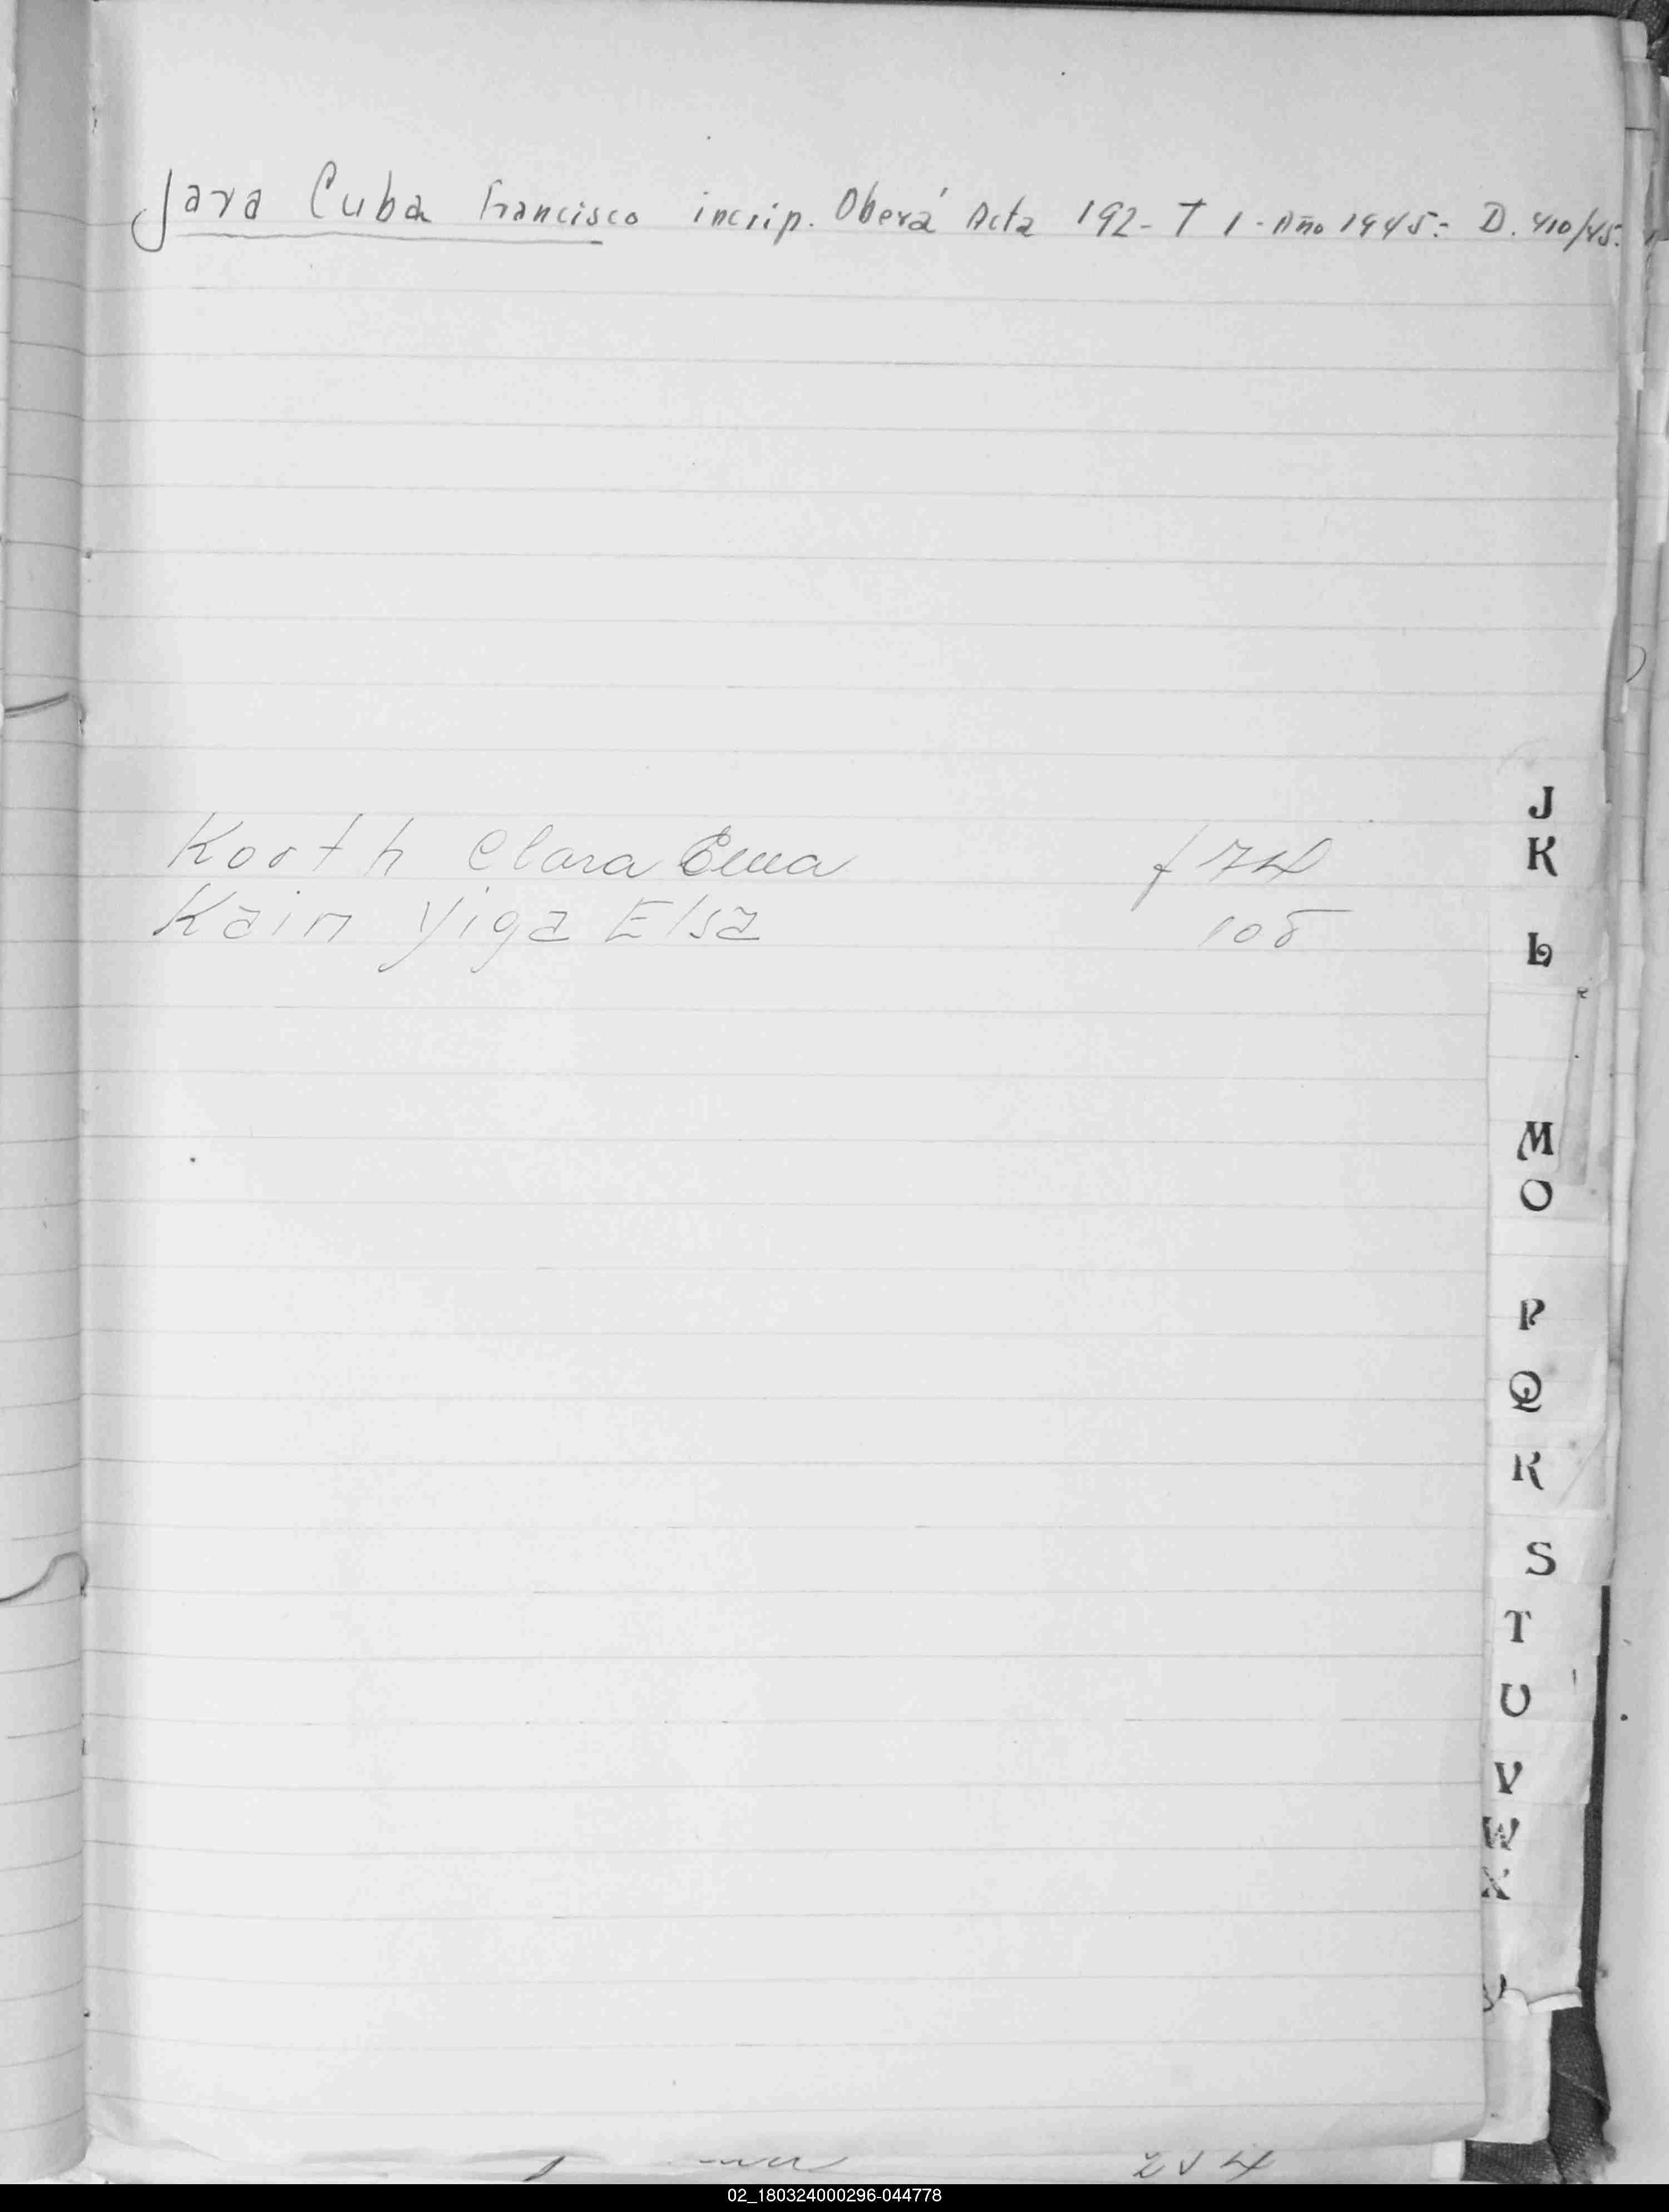 Jara Cuba Francisco incrip. Oberá Acta 192- T 1- Año 1945:- D. 410/45.
J
Korth Clara Ema f 74
K
Kain Yiga Elsa 105
L
M
O
P
Q
R
S
T
U
V
W
X
254
02_180324000296-044778